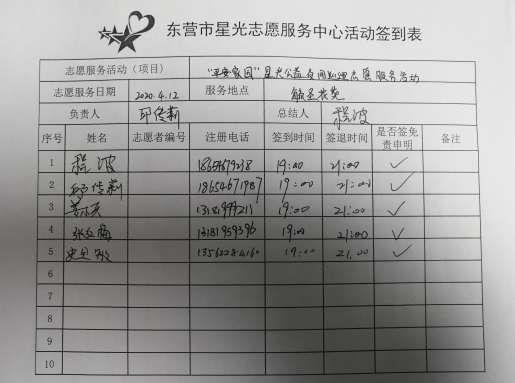 东营市星光志愿服务中心活动签到表
志愿服务活动（项目） "平安家园"星光公益夜间巡逻志愿服务活动
志愿服务日期 2020.4.12 服务地点
负责人 邱传莉 总结人 程波
序号 姓名 志愿者编号 注册电话 签到时间 签退时间 是否签免责申明 备注
1 程波 19:00 21:00 ✓
2 邱传莉 18654671987 19:00 21:00 ✓
3 19:00 21:00 ✓
4 13181959396 19:00 21:00 ✓
5 19:00 21:00 ✓
6
7
8
9
10